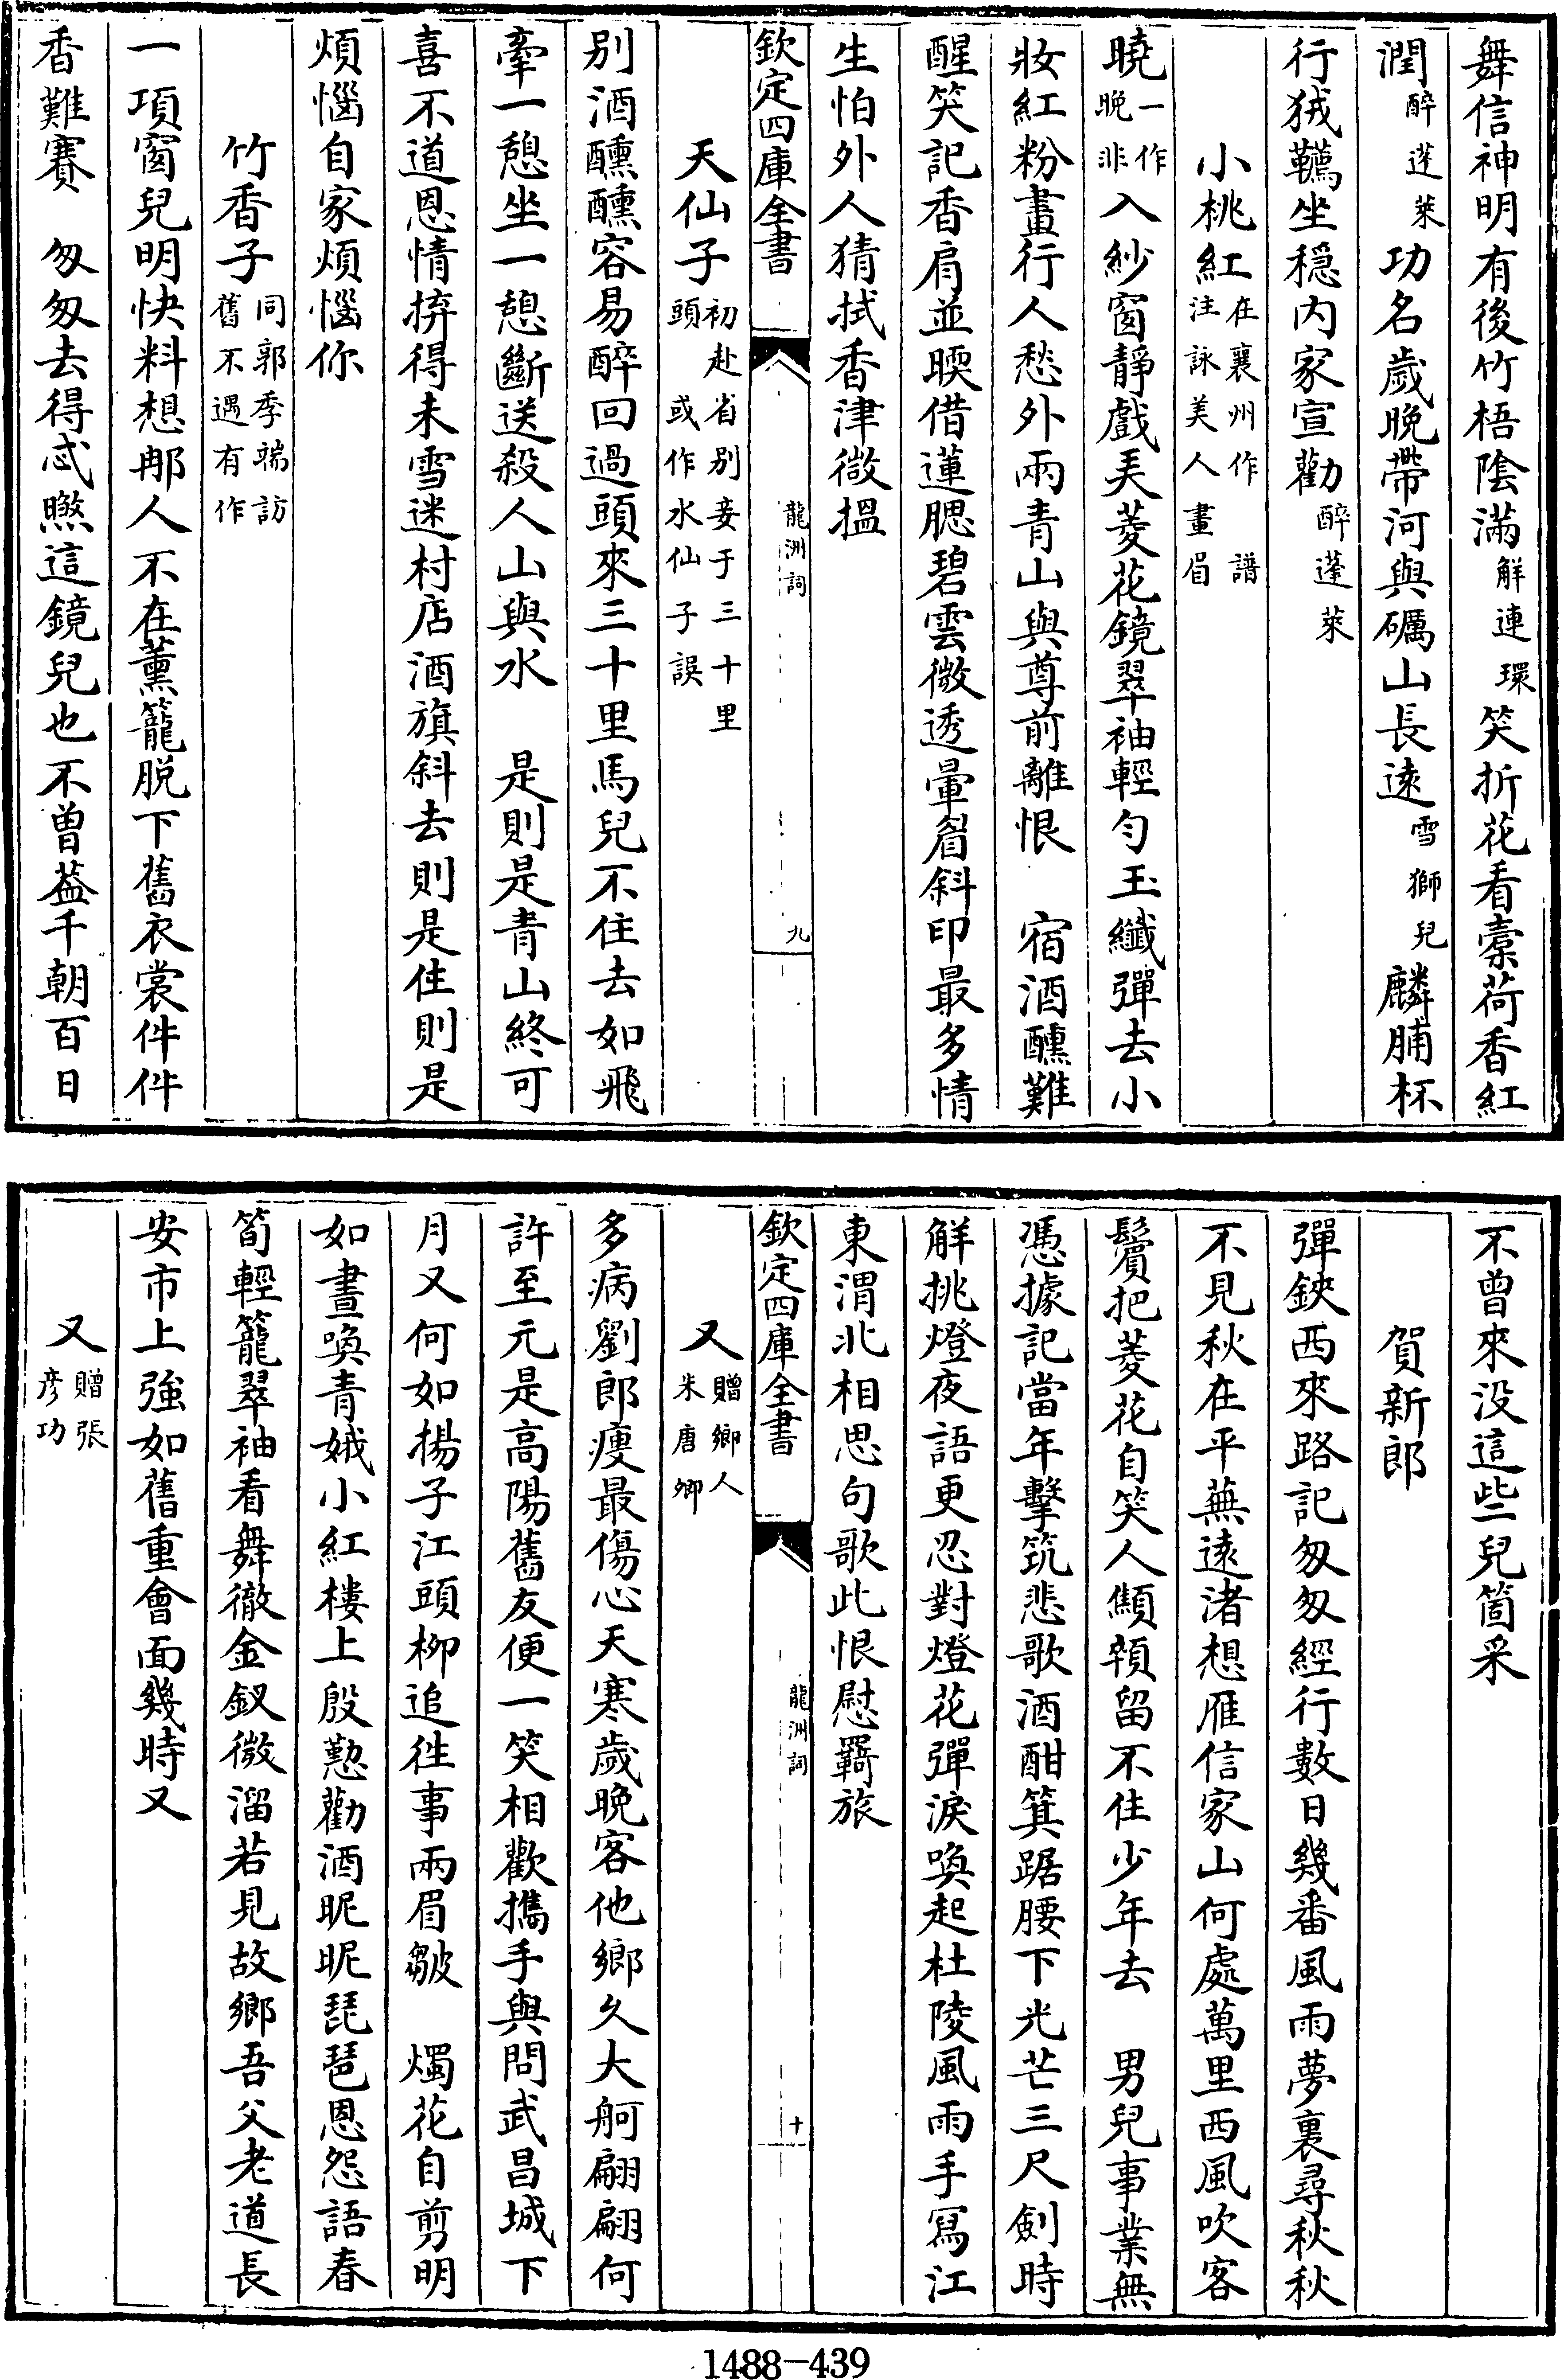 舞信神明有後竹梧陰滿解連環笑折花看橐荷香紅
潤醉蓬萊功名歲晚帶河與礪山長遠雪獅兒麟脯杯
行狨韉坐穩内家宣勸醉蓬萊
小桃紅在襄州作 譜注詠美人畫眉
曉一作晚非入紗窗靜戲美菱花鏡翠袖輕勻玉纖彈去小
妝紅粉畫行人愁外兩青山與尊前離恨 宿酒醺難
醒笑記香肩並暖借蓮腮碧雲微透暈眉斜印最多情
生怕外人猜拭香津微搵
欽定四庫全書 龍洲詞 九
天仙子初赴省別妾于三十里頭 或作水仙子誤
別酒醺醺容易醉回過頭來三十里馬兒不住去如飛
牽一憩坐一憩斷送殺人山與水 是則是青山終可
喜不道恩情拚得未雪迷村店酒旗斜去則是住則是
煩惱自家煩惱你
竹香子同郭季端訪舊不遇有作
一項窗兒明快料想那人不在薰籠脱下舊衣裳件件
香難賽 匆匆去得忒㬠這鏡兒也不曾葢千朝百日
不曾來没這些兒箇采
賀新郎
彈鋏西來路記匆匆經行數日幾番風雨夢裏尋秋秋
不見秋在平蕪遠渚想雁信家山何處萬里西風吹客
鬢把菱花自笑人顦顇留不住少年去 男兒事業無
憑據記當年擊筑悲歌酒酣箕踞腰下光芒三尺劍時
解挑燈夜語更忍對燈花彈淚喚起杜陵風雨手寫江
東渭北相思句歌此恨慰羇旅
欽定四庫全書 龍洲詞 十
又贈鄉人朱唐卿
多病劉郎瘦最傷心天寒歲晚客他鄉久大舸翩翩何
許至元是高陽舊友便一笑相歡攜手與問武昌城下
月又何如揚子江頭柳追徃事兩眉皺 燭花自剪明
如晝喚青娥小紅樓上殷懃勸酒昵昵琵琶恩怨語春
筍輕籠翠袖看舞徹金釵微溜若見故鄉吾父老道長
安市上強如舊重會面幾時又
又贈張彥功
1488-439